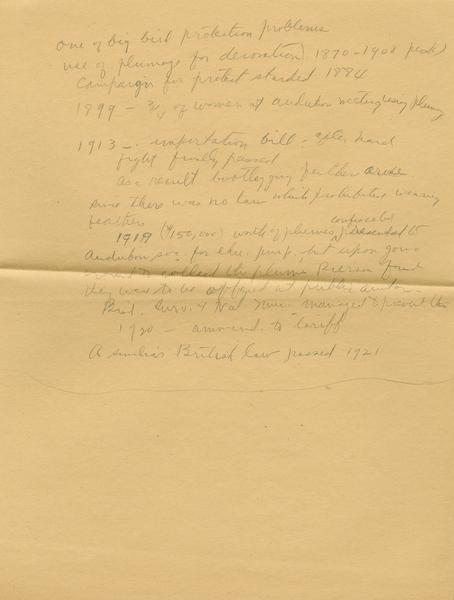 one of big bird protection problems
use of plumage for decoration) 1870-1908 peak)
Campaign for protest started 1884
1899 - 3/4 of women at audubon meeting wearing plumes
1913 - importation bill - after hard
fight finally passed
As a result bootlegging feathers
since there was no law which prohibited wearing
feathers
confiscated
1919 ($150,000) worth of plumes, presented to
Audubon soc. for edu. purp, but upon going
to collect the plumes Pearson found
they were to be offered at public auction.
Biol. Surv. & Nat. Mus. managed to prevent this
1920 - ammend. to tariff
A similar British law passed 1921